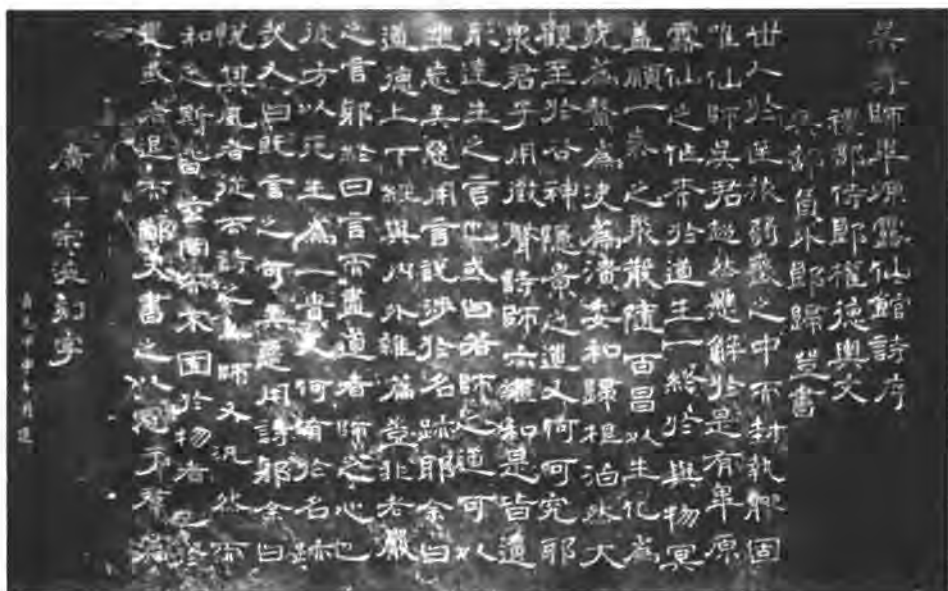 吳尊師畢原露仙館詩序
禮部侍郎權德輿文
兵部員外郎歸登書
世人於逆旅弱喪之中而封執膠固
唯仙師吳君超然懸解於是有畢原
露仙之作本於道生一終於與物冥
蓋順一氣之聚散隨百昌以生化為
疣為贅為決為潰委和歸根泊然大
觀至於谷神隱景之道又何可究耶
衆君子用徵聲詩師亦繼和是皆遺
形達生之言也或曰若師之道可以
坐忘矣惡用言說涉於名跡耶余曰
道德上下經與內外雜篇豈非老嚴
之言耶終日言而盡道者師之心也
彼方以死生為一貫又何有於名跡
或人曰既言之可矣惡用詩耶余曰
悅其風者從而訴之吾師又汎然而
和之斯皆玄同而不囿於物者也
或者退而書之以冠于篇
廣平宋液刻字